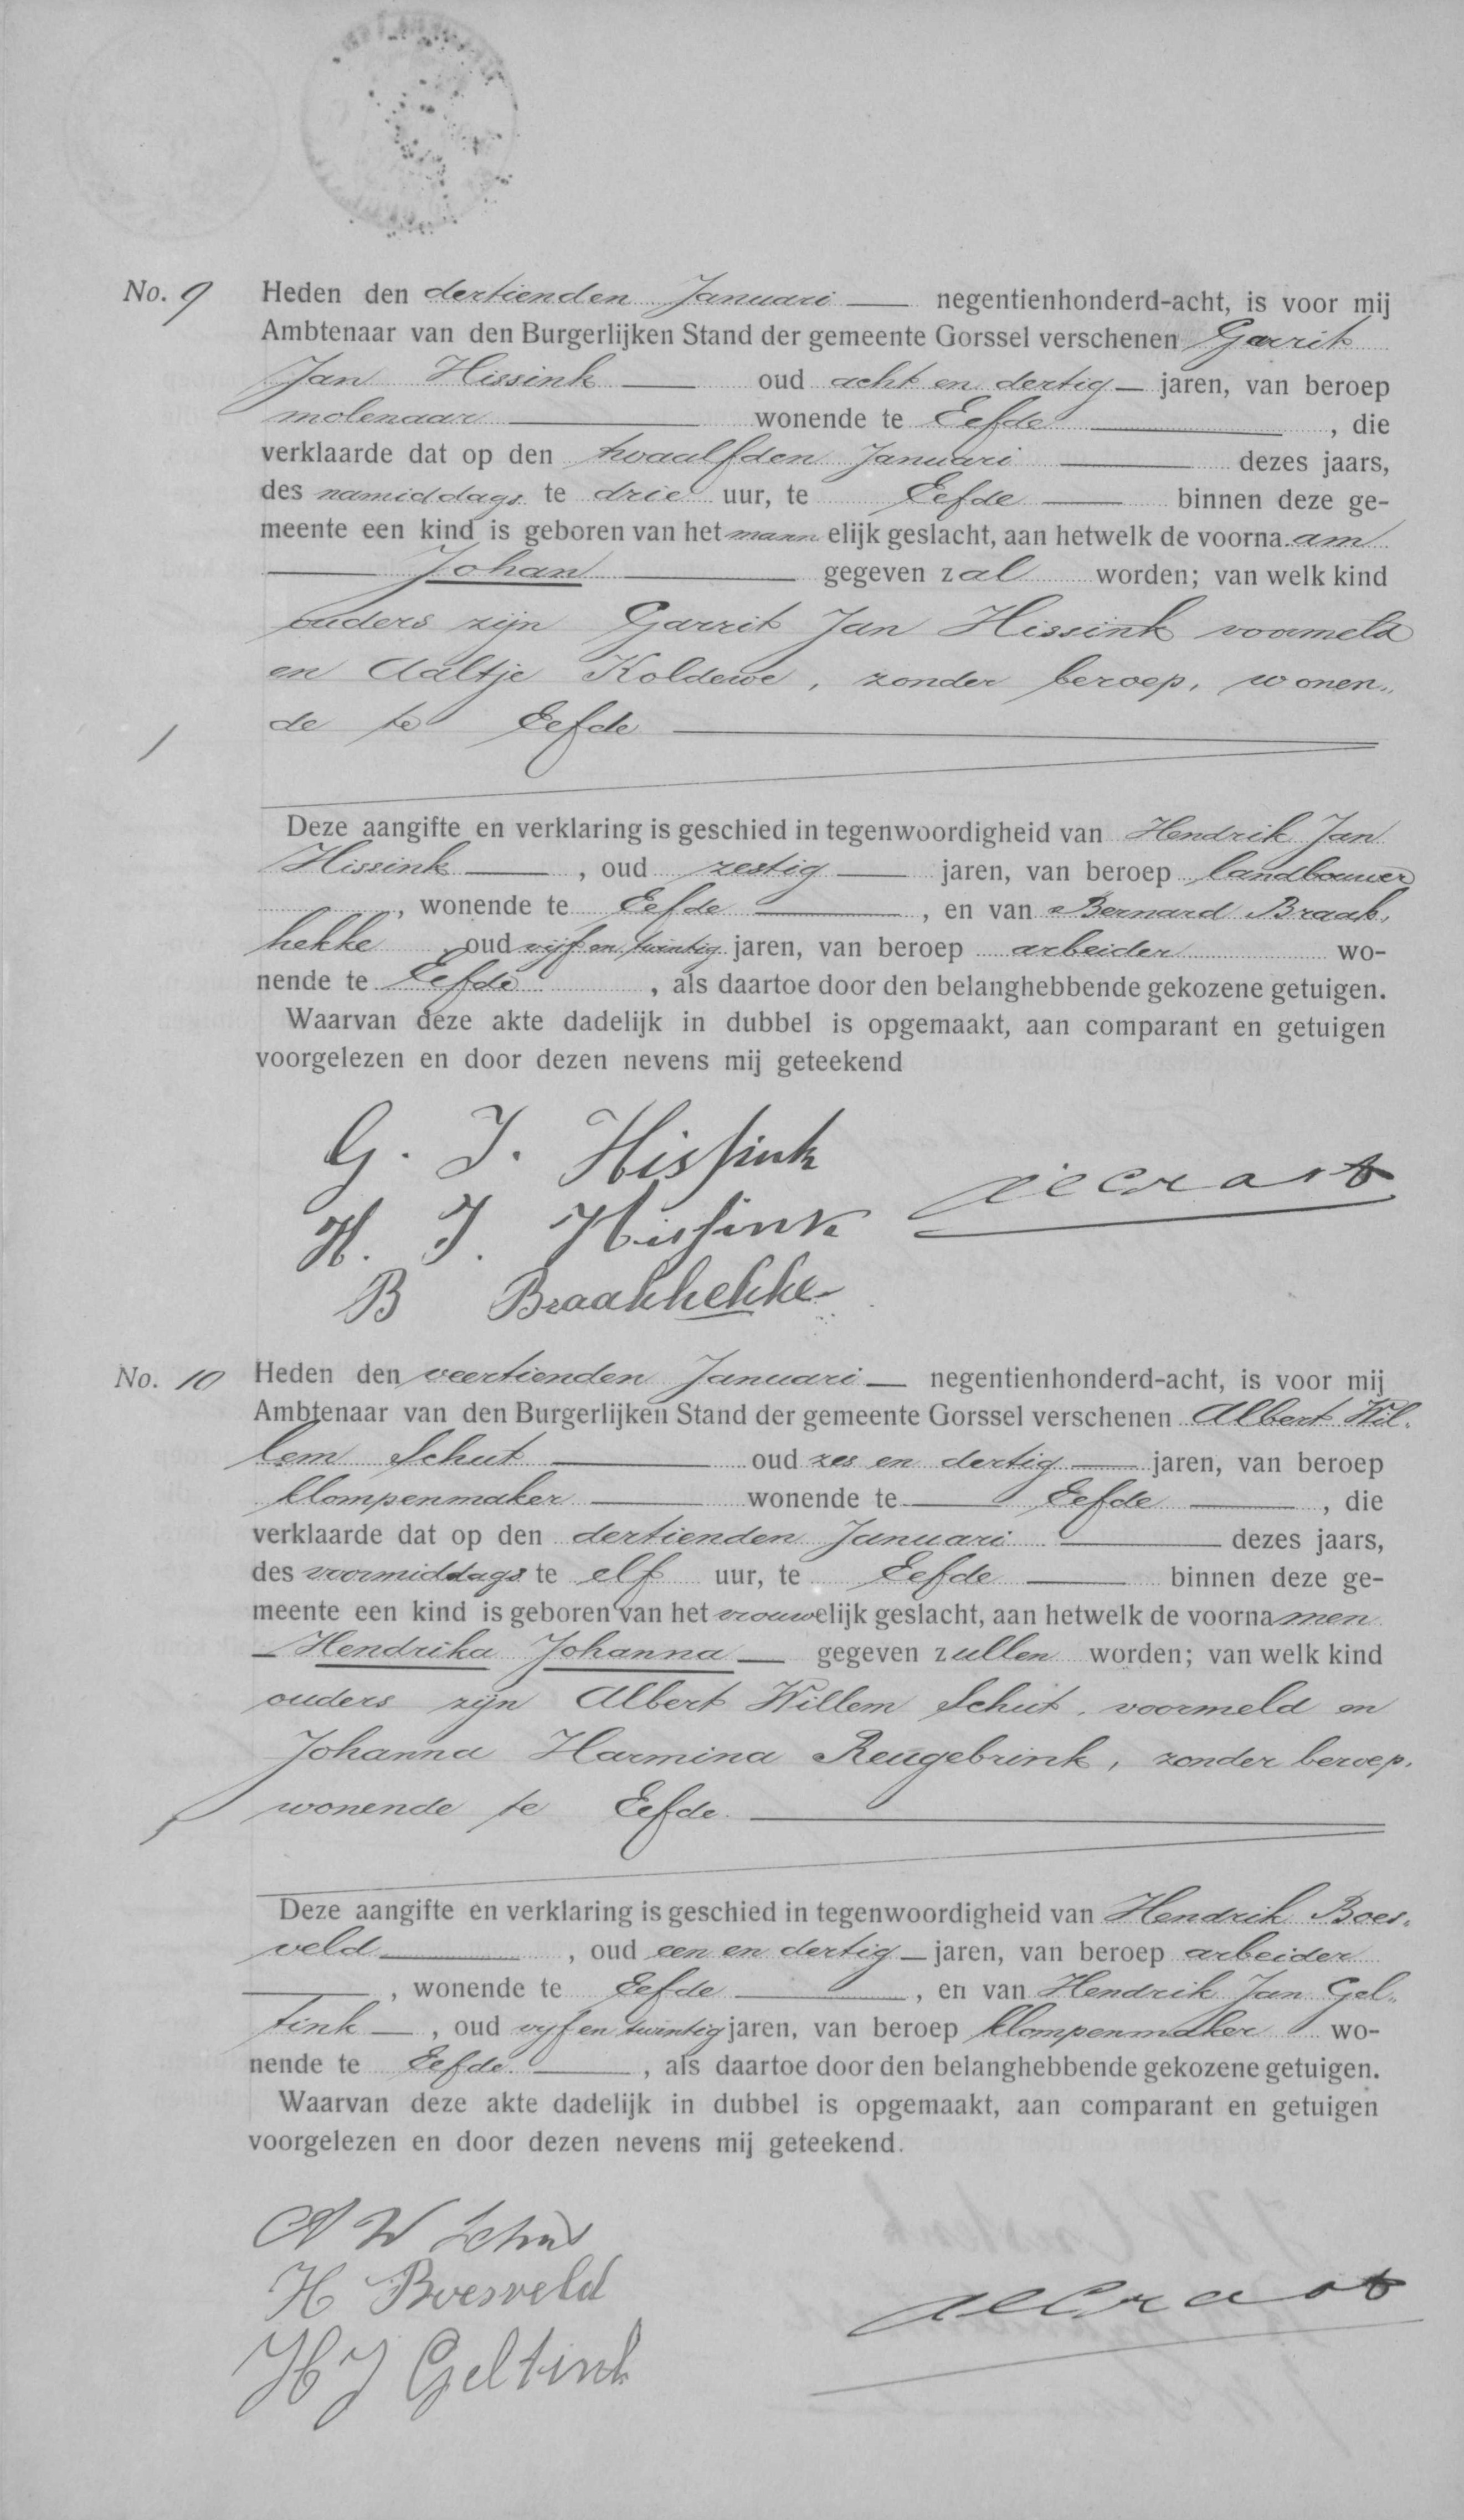 No. 9 Heden den dertienden Januari — negentienhonderd-acht, is voor mij
Ambtenaar van den Burgerlijken Stand der gemeente Gorssel verschenen Garrit
Jan Hissink — oud acht en dertig — jaren, van beroep
molenaar — wonende te Eefde —, die
verklaarde dat op den twaalfden Januari — dezes jaars,
des namiddags te drie uur, te Eefde — binnen deze ge-
meente een kind is geboren van het mannelijk geslacht, aan hetwelk de voornaam
— Johan — gegeven zal worden; van welk kind
ouders zijn Garrit Jan Hissink voormeld
en Aaltje Koldewe, zonder beroep, wonen„
de te Eefde —
Deze aangifte en verklaring is geschied in tegenwoordigheid van Hendrik Jan
Hissink —, oud zestig — jaren, van beroep landbouwer
, wonende te Eefde —, en van Bernard Braak„
hekke, oud vijf en twintig jaren, van beroep arbeider wo-
nende te Eefde, als daartoe door den belanghebbende gekozene getuigen.
Waarvan deze akte dadelijk in dubbel is opgemaakt, aan comparant en getuigen
voorgelezen en door dezen nevens mij geteekend
G. J. Hissink
H. J. Hissink
B Braakhekke
No. 10 Heden den veertienden Januari — negentienhonderd-acht, is voor mij
Ambtenaar van den Burgerlijken Stand der gemeente Gorssel verschenen Albert Wil„
lem Schut — oud zes en dertig — jaren, van beroep
klompenmaker — wonende te — Eefde —, die
verklaarde dat op den dertienden Januari — dezes jaars,
des voormiddags te elf uur, te Eefde — binnen deze ge-
meente een kind is geboren van het vrouwelijk geslacht, aan hetwelk de voornamen
— Hendrika Johanna — gegeven zullen worden; van welk kind
ouders zijn Albert Willem Schut, voormeld en
Johanna Harmina Reugebrink, zonder beroep,
wonende te Eefde —
Deze aangifte en verklaring is geschied in tegenwoordigheid van Hendrik Boes„
veld —, oud een en dertig — jaren, van beroep arbeider
—, wonende te Eefde —, en van Hendrik Jan Gel„
tink —, oud vijf en twintig jaren, van beroep klompenmaker wo-
nende te Eefde —, als daartoe door den belanghebbende gekozene getuigen.
Waarvan deze akte dadelijk in dubbel is opgemaakt, aan comparant en getuigen
voorgelezen en door dezen nevens mij geteekend.
A W Schut
H Boesveld
H J Geltink